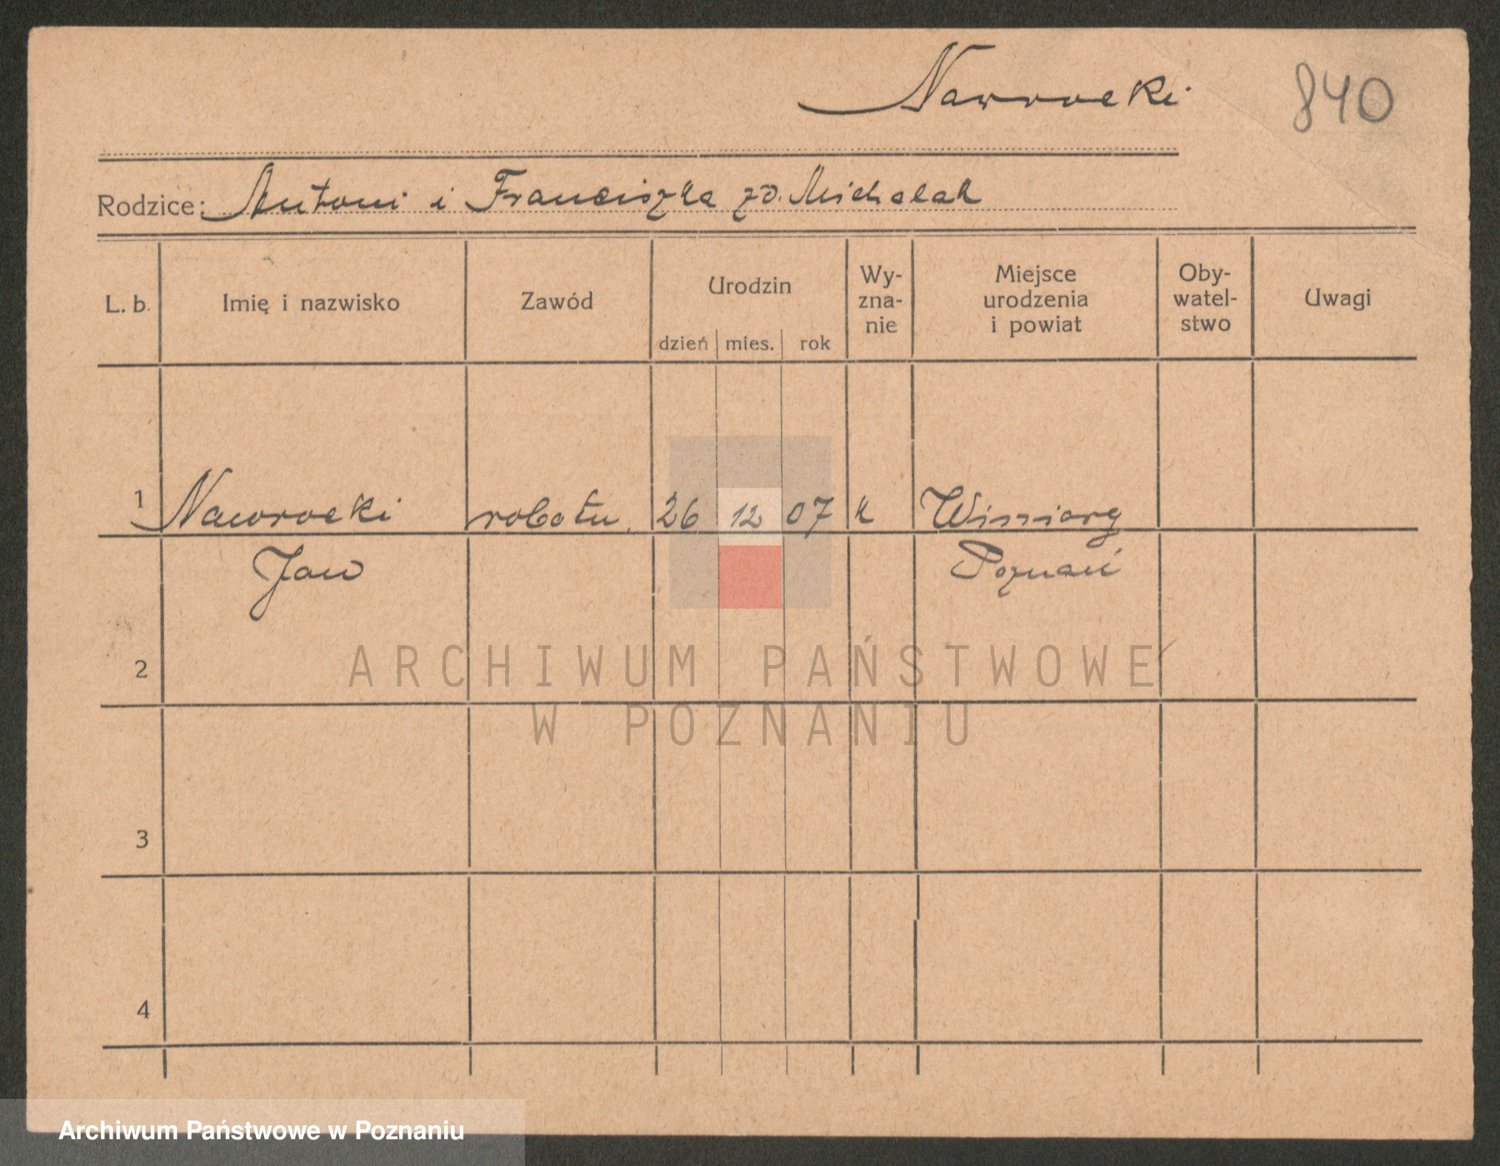 Nawrocki 840
Rodzice: Antoni i Franciszka zd. Michalak
L. b. Imię i nazwisko Zawód Urodzin dzień mies. rok Wy-zna-nie Miejsce urodzenia i powiat Oby-watel-stwo Uwagi
1 Nawrocki robotn. 26 12 07 k Winiary
Jan Poznań
2
ARCHIWUM PAŃSTWOWE
W POZNANIU
3
4
Archiwum Państwowe w Poznaniu